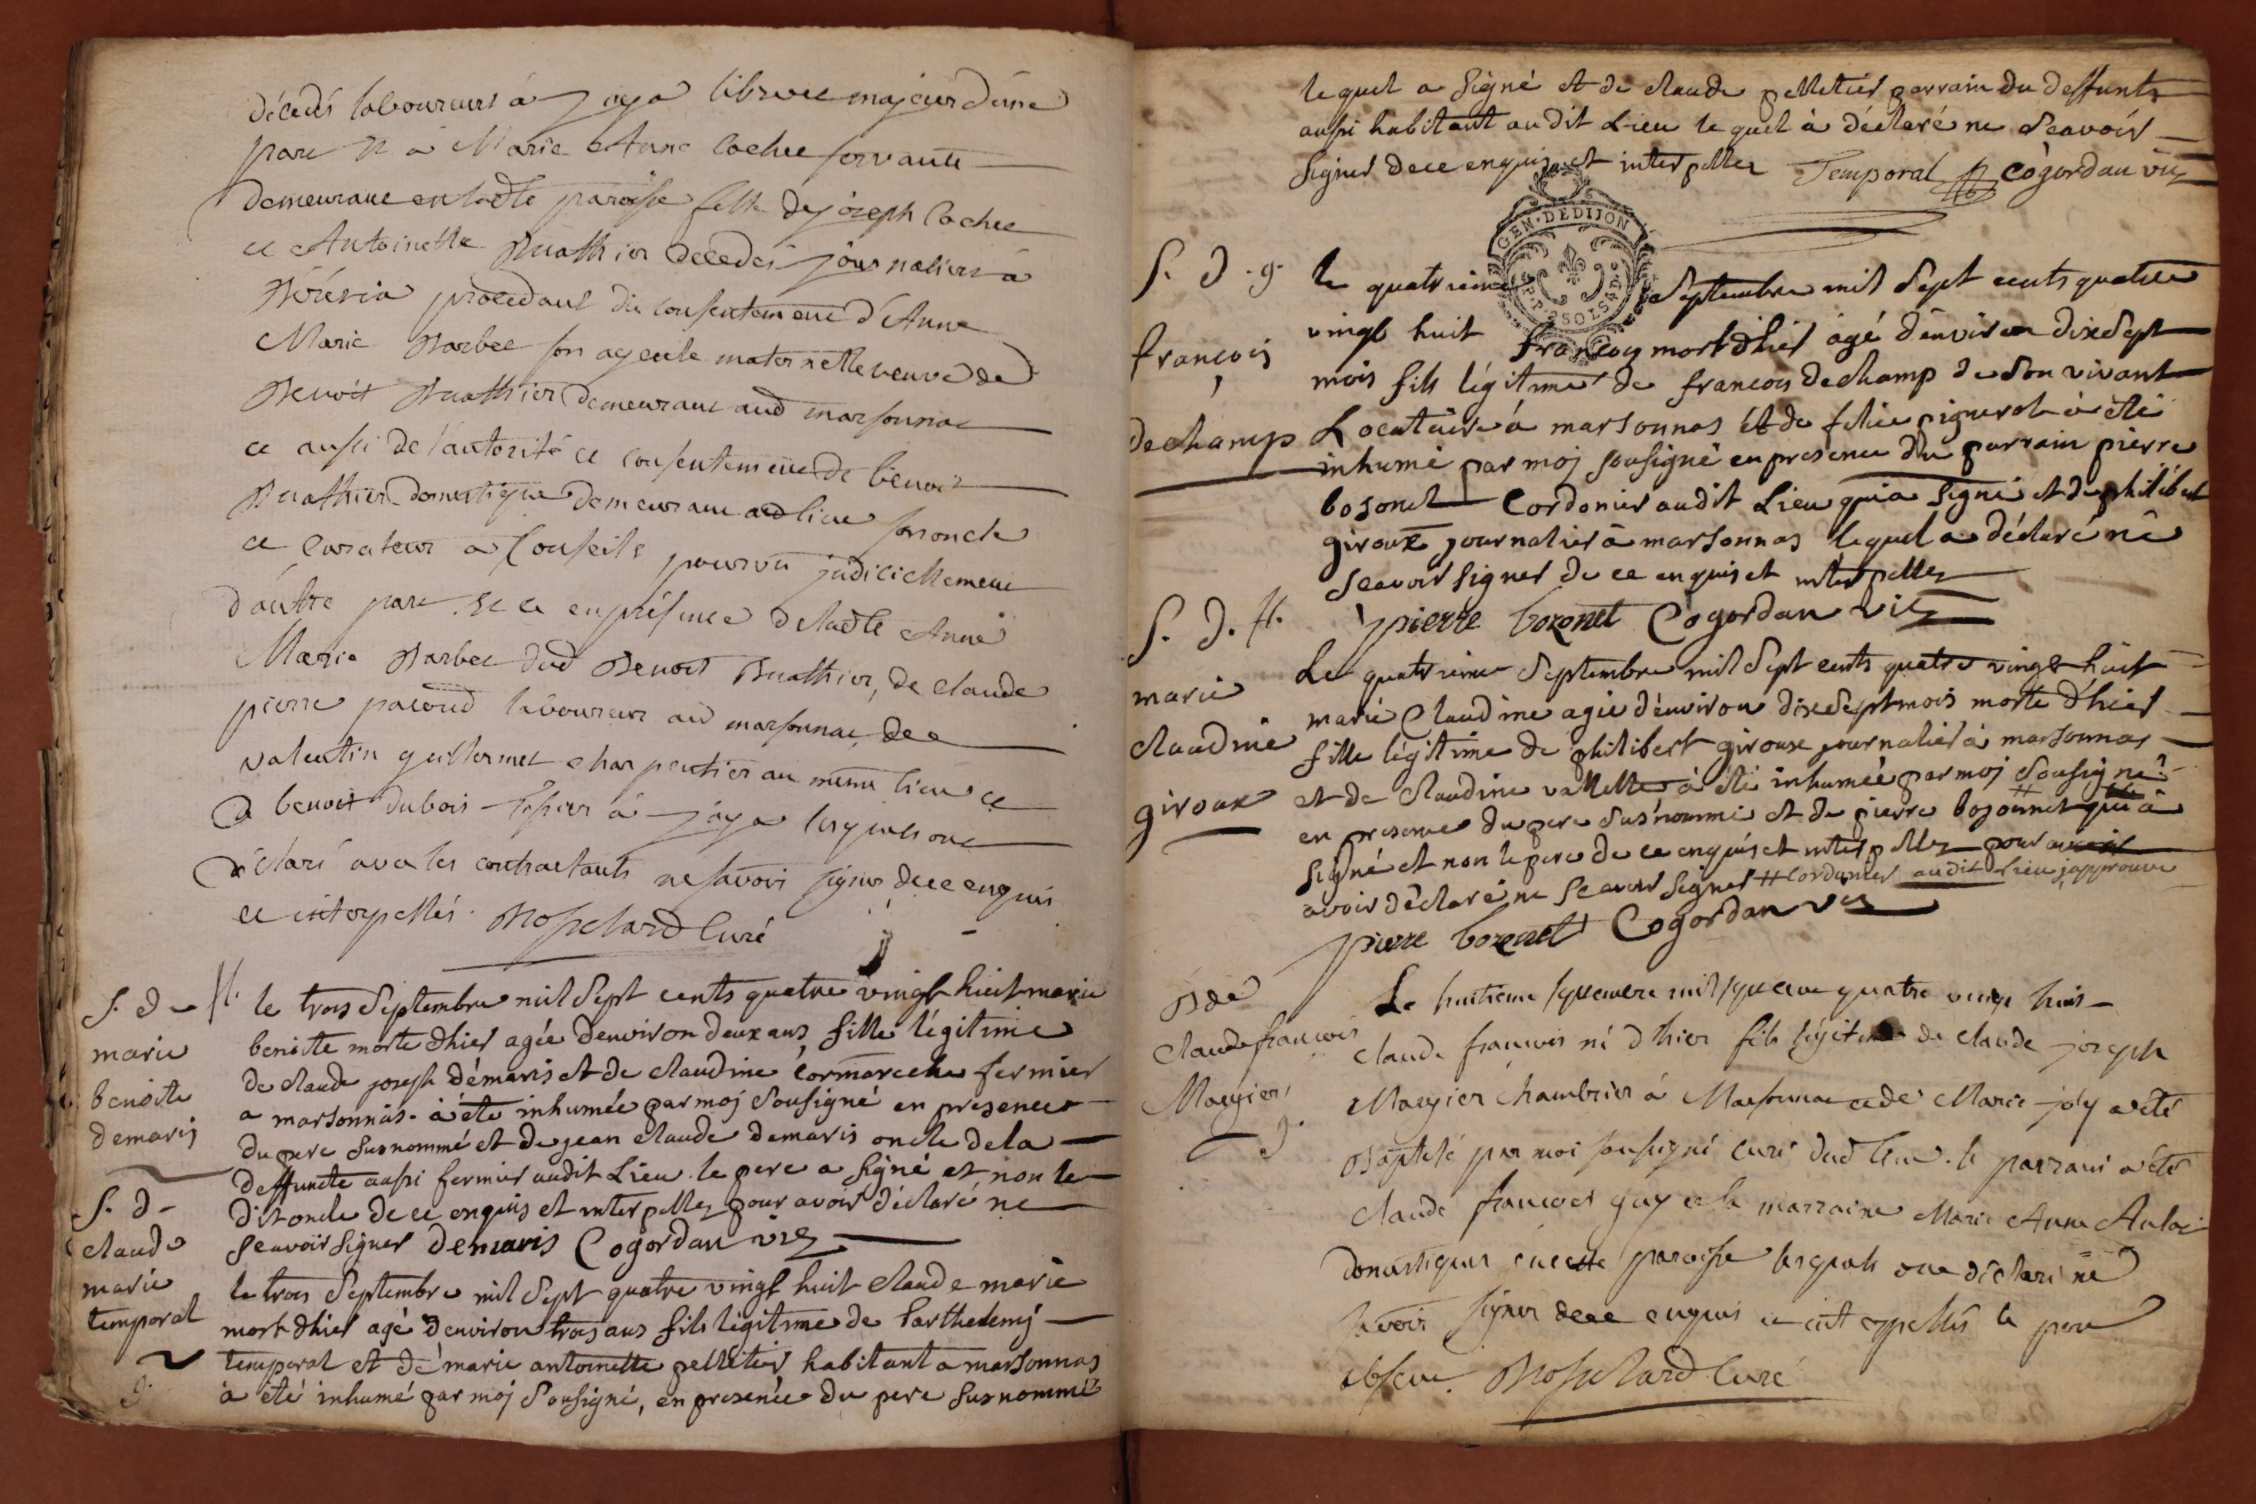 décedés laboureurs à jaya libre et majeur d'une
part Et à Marie Anne Cochet servante
demeurant en ladte paroisse fille de joseph Cochet
et Antoinette Buathier décedés journaliers à
Béréria procedant du consentement d'Anne
Marie Barbet son ayeule maternelle veuve de
Benoit Buathier demeurant aud marsonnac
et aussi de l'autorité et consentement de benoit
Buathier domestique demeurant aud lieu son oncle
et Curateur a Conseils pourvu judiciellement
d'autre part. Et ce en présence de ladte Anne
Marie Barbet dud Benoit Buathier, de claude
pierre pacoud laboureur aud marsonnac, de
valentin guillermet charpentier au même lieu et
de benoit dubois tissier à jaya lesquels ont
déclaré avec les contractants ne savoir signer de ce enquis
et interpellés. curé
S. d - H.
marie
benoite
demaris
le trois Septembre mil Sept cents quatre vingt huit marie
benoite morte d'hier agée d'environ deux ans, fille légitime
de claude joseph démaris et de claudine cormareche fermier
a marsonnas. à été inhumée par moj Sousigné en presence
du pere susnommé et de jean claude demaris oncle de la
deffuncte aussi fermier audit Lieu le pere a signé et non le
dit oncle de ce enquis et interpellez pour avoir déclaré ne
sçavoir signer demaris Cogordan vic
S. d -
claude
marie
temporal
le trois Septembre mil Sept quatre vingt huit claude marie
mort d'hier agé d'environ trois ans fils légitime de barthelemj
temporal et de marie antoinette pelletier, habitant a marsonnas
à été inhumé par moj Sousigné, en presence du pere susnommé
lequel a signé et de claude pelletier parrain du deffunts
aussi habitant audit Lieu lequel à déclaré ne sçavoir
signer de ce enquis et interpellez Temporal Cogordan vic
GEN · DE DIJON
P.P. 2 SOLS 4 D.
S. d. g.
françois
dechamp
le quatrieme Septembre mil Sept cents quatre
vingt huit françois mort d'hier agé d'environ dix Sept
mois fils légitime de françois dechamp de son vivant
Locataire à marsonnas et de felie pignerol à été
inhumé par moj sousigné en presence du parrain pierre
bosonet Cordonier audit Lieu qui a signé et de philibert
giroux journalier à marsonnas lequel a déclaré ne
sçavoir signer de ce enquis et interpellez
pierre bozonet Cogordan vic
S. d. H.
marie
claudine
giroux
Le quatrieme Septembre mil Sept cents quatre vingt huit
marie Claudine agée d'environ dix Sept mois morte d'hier
fille légitime de philibert giroux journalier à marsonnas
et de Claudine vallette à été inhumée par moj Sousigné
en presence du pere susnommé et de pierre bosonnet # qui à
signé et non le pere de ce enquis et interpellez pour avoir
avoir déclaré ne sçavoir signer # cordonier audit Lieu japprouve
pierre bozonet Cogordan vic
B de
Claude françois
Maugier
Le huitieme septembre mil sept cent quatre vingt huit
claude françois né d'hier fils légitime de claude joseph
Maugier chambrier à Marsonnac et de Marie joly a été
Baptisé par moi soussigné curé dud lieu. le parrain a été
claude françois guy et la marraine Marie Anne
domestiques en cette paroisse lesquels ont déclaré ne
savoir signer de ce enquis et interpellés le pere
absent. Curé